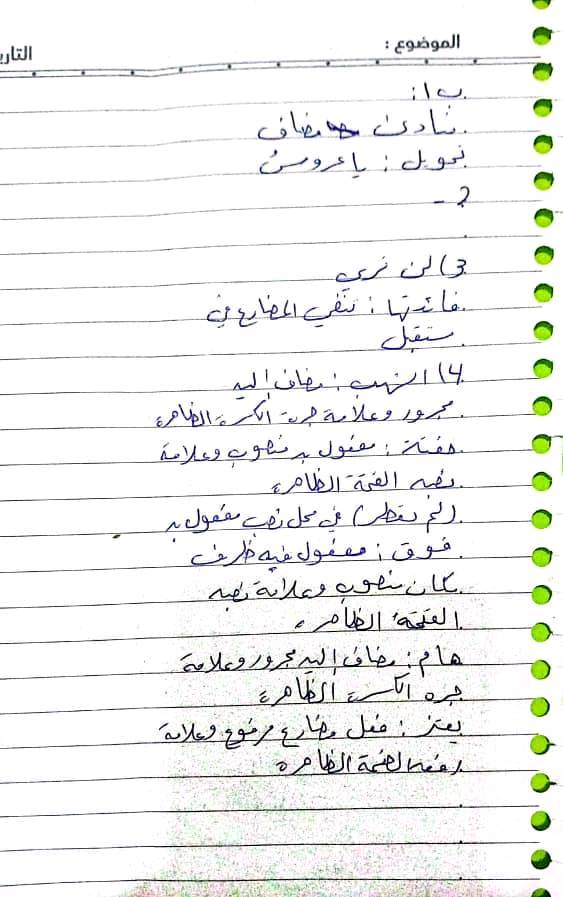 الموضوع :
التاري
ب ١:
منادى مضاف
تحويل : يا عروس
2 -
3) لن نرى
فائدتها : تنفي المضارع في
مستقبل
4) الذهب : مضاف اليه
مجرور وعلامة جره الكسرة الظاهرة
حفنة : مفعول به منصوب وعلامة
نصبه الفتحة الظاهرة
(لم تمطر) في محل نصب مفعول به
فوق : مفعول فيه ظرف
مكان منصوب وعلامة نصبه
الفتحة الظاهرة
هام : مضاف إليه مجرور وعلامة
جره الكسرة الظاهرة
يعتز : فعل مضارع مرفوع وعلامة
رفعه الضمة الظاهرة